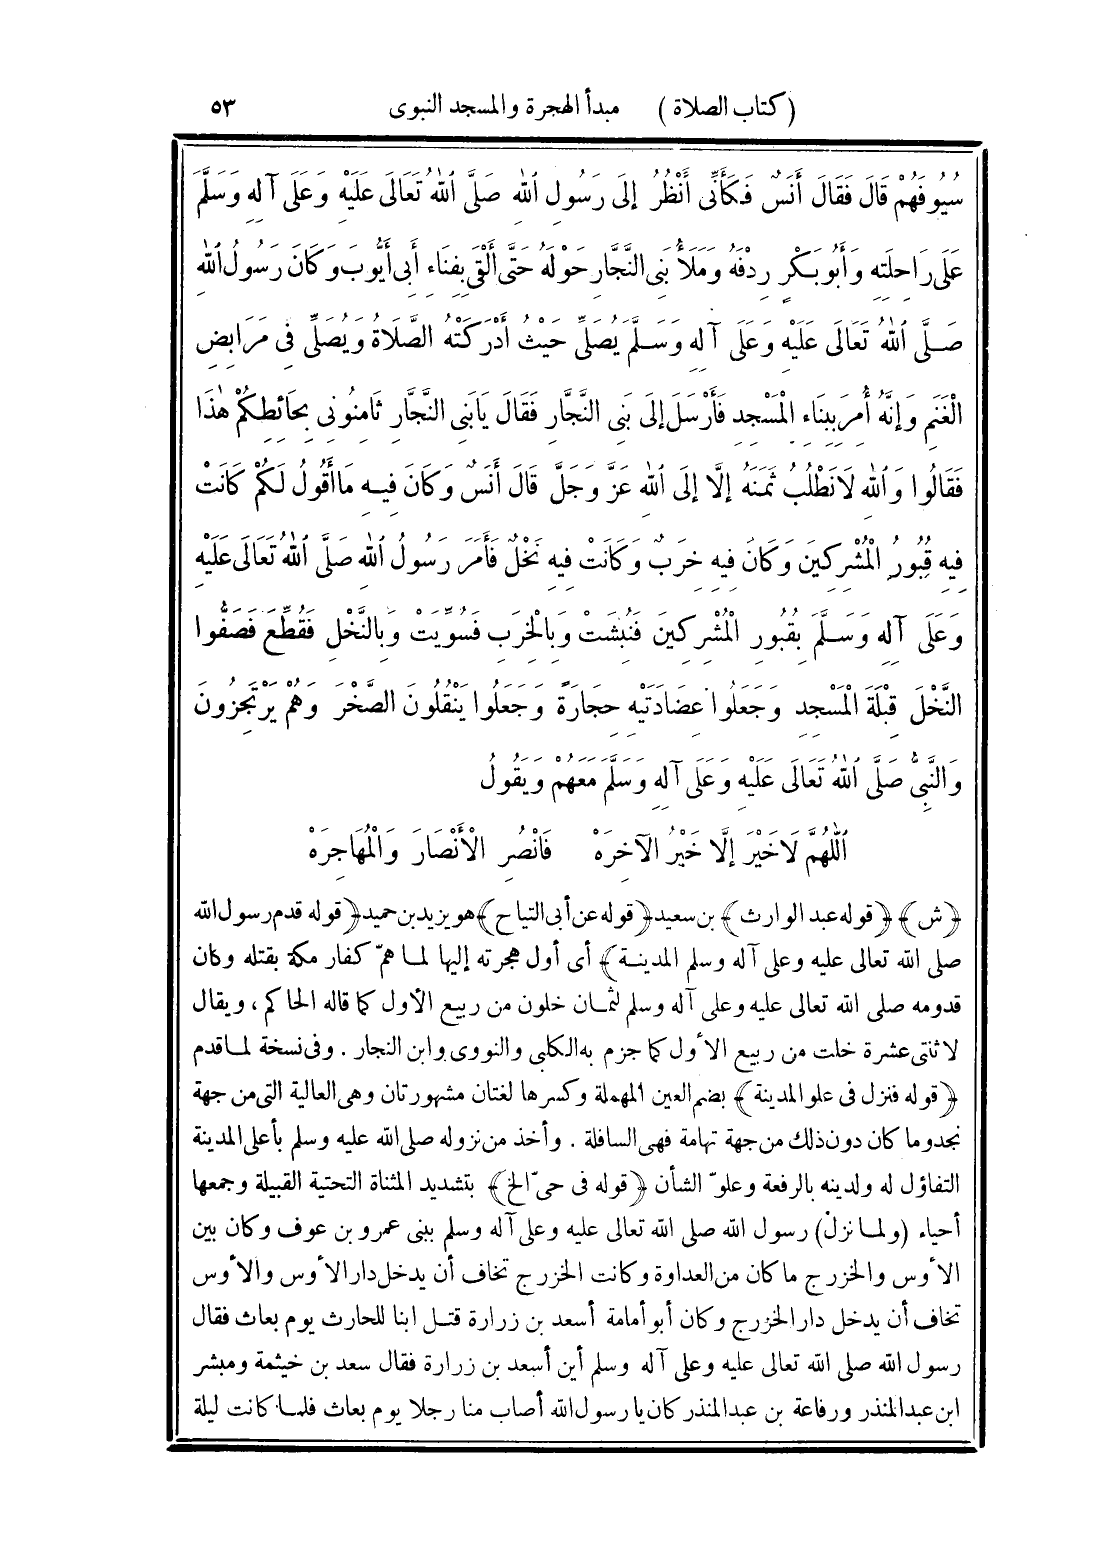 (كتاب الصلاة) مبدأ الهجرة والمسجد النبوى ٥٣
سُيُوفَهُمْ قَالَ فَقَالَ أَنَسٌ فَكَأَنِّى أَنْظُرُ إِلَى رَسُولِ اللهِ صَلَّى اللهُ تَعَالَى عَلَيْهِ وَعَلَى آلِهِ وَسَلَّمَ
عَلَى رَاحِلَتِهِ وَأَبُو بَكْرٍ رِدْفَهُ وَمَلَأُ بَنِى النَّجَّارِ حَوْلَهُ حَتَّى أَلْقَى بِفِنَاءِ أَبِى أَيُّوبَ وَكَانَ رَسُولُ اللهِ
صَلَّى اللهُ تَعَالَى عَلَيْهِ وَعَلَى آلِهِ وَسَلَّمَ يُصَلِّى حَيْثُ أَدْرَكَتْهُ الصَّلَاةُ وَيُصَلِّى فِى مَرَابِضِ
الْغَنَمِ وَإِنَّهُ أُمِرَ بِبِنَاءِ الْمَسْجِدِ فَأَرْسَلَ إِلَى بَنِى النَّجَّارِ فَقَالَ يَابَنِى النَّجَّارِ ثَامِنُونِى بِحَائِطِكُمْ هٰذَا
فَقَالُوا وَاللهِ لَانَطْلُبُ ثَمَنَهُ إِلَّا إِلَى اللهِ عَزَّ وَجَلَّ قَالَ أَنَسٌ وَكَانَ فِيهِ مَاأَقُولُ لَكُمْ كَانَتْ
فِيهِ قُبُورُ الْمُشْرِكِينَ وَكَانَ فِيهِ خَرِبٌ وَكَانَتْ فِيهِ نَخْلٌ فَأَمَرَ رَسُولُ اللهِ صَلَّى اللهُ تَعَالَى عَلَيْهِ
وَعَلَى آلِهِ وَسَلَّمَ بِقُبُورِ الْمُشْرِكِينَ فَنُبِشَتْ وَبِالْخَرِبِ فَسُوِّيَتْ وَبِالنَّخْلِ فَقُطِّعَ فَصَفُّوا
النَّخْلَ قِبْلَةَ الْمَسْجِدِ وَجَعَلُوا عِضَادَتَيْهِ حِجَارَةً وَجَعَلُوا يَنْقُلُونَ الصَّخْرَ وَهُمْ يَرْتَجِزُونَ
وَالنَّبِىُّ صَلَّى اللهُ تَعَالَى عَلَيْهِ وَعَلَى آلِهِ وَسَلَّمَ مَعَهُمْ وَيَقُولُ
اللّٰهُمَّ لَاخَيْرَ إِلَّا خَيْرُ الْآخِرَهْ فَانْصُرِ الْأَنْصَارَ وَالْمُهَاجِرَهْ
﴿ش﴾ ﴿قوله عبد الوارث﴾ بن سعيد ﴿قوله عن أبى التياح﴾ هو يزيد بن حميد ﴿قوله قدم رسول الله
صلى الله تعالى عليه وعلى آله وسلم المدينة﴾ أى أول هجرته إليها لما همّ كفار مكة بقتله وكان
قدومه صلى الله تعالى عليه وعلى آله وسلم لثمان خلون من ربيع الأول كما قاله الحاكم، ويقال
لاثنتى عشرة خلت من ربيع الأول كما جزم به الكلبى والنووى وابن النجار . وفى نسخة لما قدم
﴿قوله فنزل فى علو المدينة﴾ بضم العين المهملة وكسرها لغتان مشهورتان وهى العالية التى من جهة
نجد وما كان دون ذلك من جهة تهامة فهى السافلة . وأخذ من نزوله صلى الله عليه وسلم بأعلى المدينة
التفاؤل له ولدينه بالرفعة وعلوّ الشأن ﴿قوله فى حىّ الخ﴾ بتشديد المثناة التحتية القبيلة وجمعها
أحياء (ولما نزل) رسول الله صلى الله تعالى عليه وعلى آله وسلم ببنى عمرو بن عوف وكان بين
الأوس والخزرج ما كان من العداوة وكانت الخزرج تخاف أن يدخل دار الأوس والأوس
تخاف أن يدخل دار الخزرج وكان أبو أمامة أسعد بن زرارة قتل ابنا للحارث يوم بعاث فقال
رسول الله صلى الله تعالى عليه وعلى آله وسلم أين أسعد بن زرارة فقال سعد بن خيثمة ومبشر
ابن عبد المنذر ورفاعة بن عبد المنذر كان يا رسول الله أصاب منا رجلا يوم بعاث فلما كانت ليلة